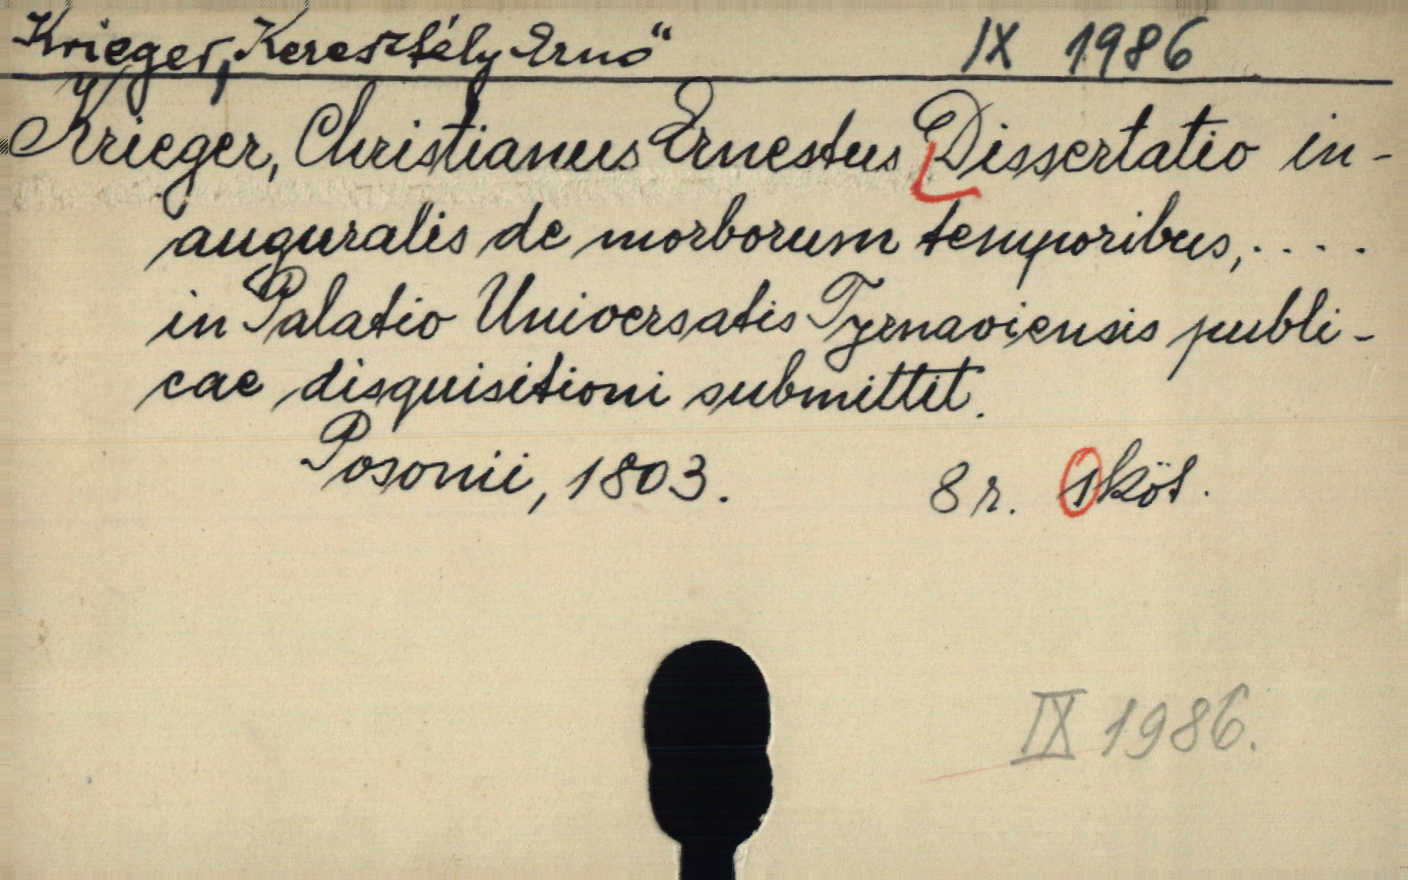 Krieger, Keresztély Ernő IX 1986
Krieger, Christianus Ernestus Dissertatio in-
auguralis de morborum temporibus, . . . .
in Palatio Universatis Tyrnaviensis publi-
cae disquisitioni submittit.
Posonii, 1803. 8 r. 1 köt.
IX 1986.